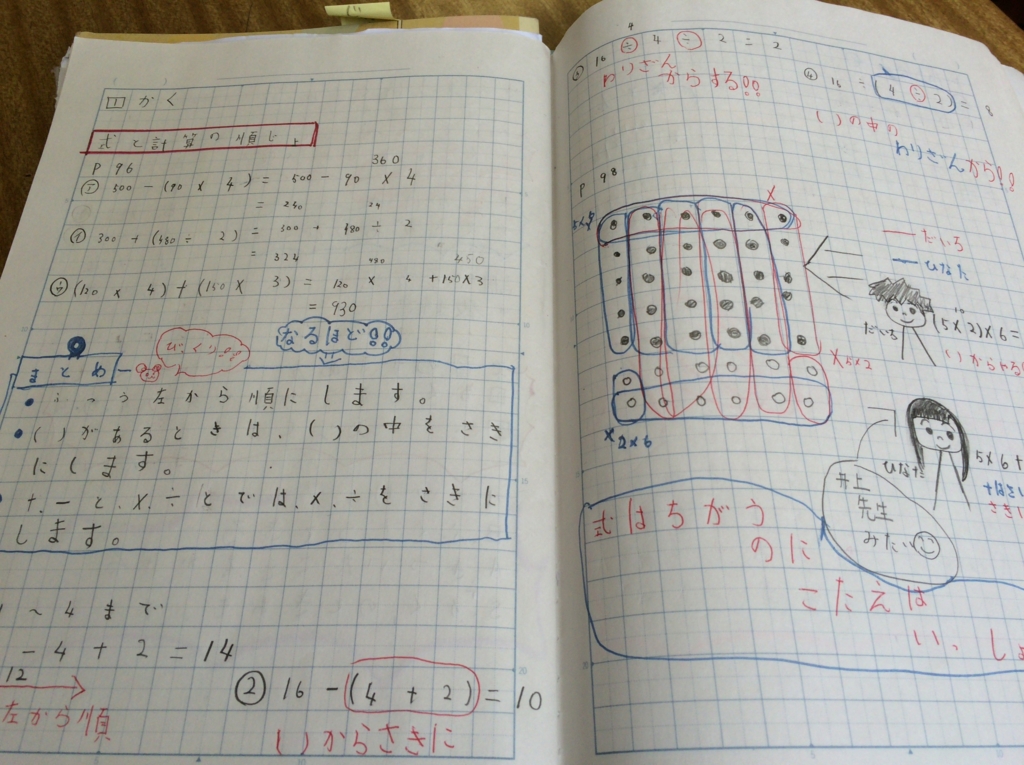 1 かく
式と計算の順じょ
P 96
360
㋐ 500 − (90 × 4) = 500 − 90 × 4
= 240 24
㋑ 300 + (480 ÷ 2) = 300 + 480 ÷ 2
= 324 480 450
㋒ (120 × 4) + (150 × 3) = 120 × 4 + 150 × 3
= 930
びっくり!!
なるほど!!
まとめ
• ふつう左から順にします。
• ( )があるときは、( )の中をさき
にします。
• +、−と、×、÷とでは、×、÷をさきに
します。
〜 4 まで
− 4 + 2 = 14
12
左から順
② 16 − (4 + 2) = 10
( )からさきに
4
16 ÷ 4 ÷ 2 = 2
わりざん
からする!!
④ 16 ÷ (4 ÷ 2) = 8
( )の中の
わりざーんから!!
P 98
×
×5×2
×
2×6
だいち
ひなた
だいち
10
(5×2)×6=
( )からやる
ひなた
5×6+
さきに
井上
先生
みたい
式はちがう
のに
こたえは
いっしょ